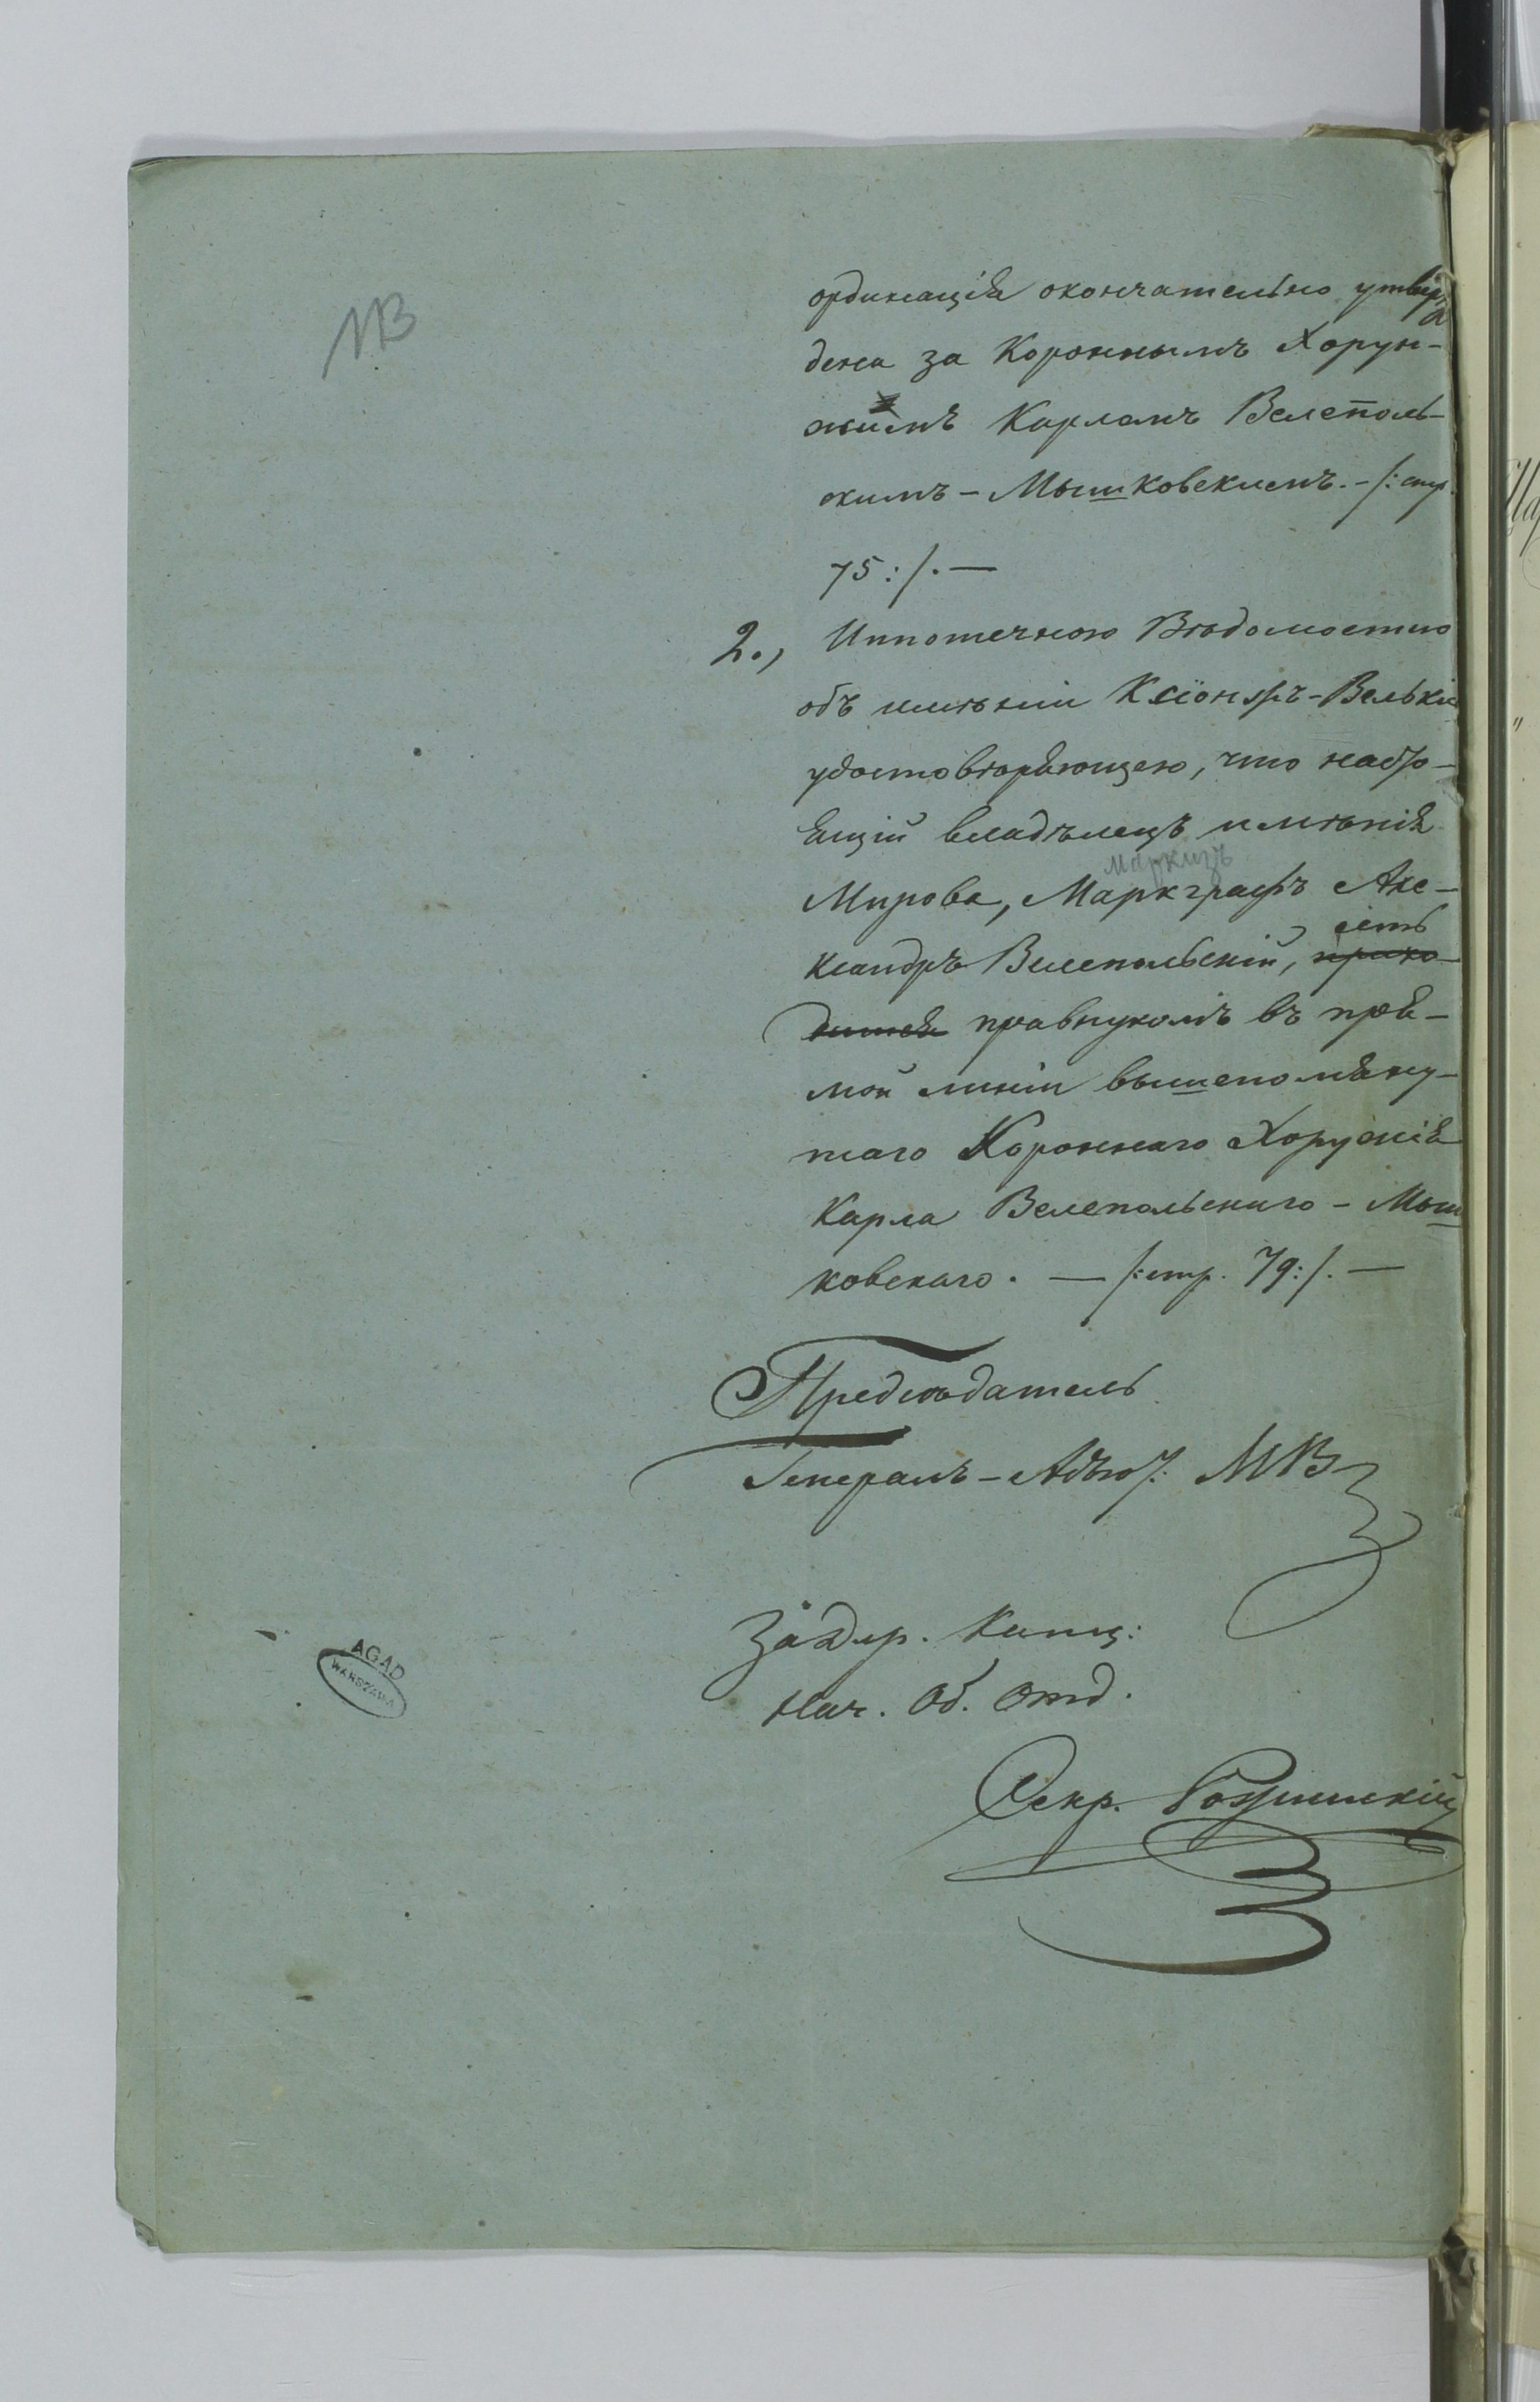 МВ
ординація окончательно утвер-
дена за Короннымъ Хорун-
жимъ Карломъ Велеполь-
скимъ-Мышковскимъ. - /: стр.
75 :/. —
2., Ипотечною Вѣдомостью
объ имѣніи Ксіонжъ-Велькій
удостовѣряющею, что насто-
ящій владѣлецъ имѣнія
Маркизъ
Мирова, Маркграфъ Але-
есть
ксандръ Велепольскій, прихо-
дится правнукомъ въ пря-
мой линіи вышепомяну-
таго Короннаго Хорунжія
Карла Велепольскаго - Мыш
ковскаго. — /: стр. 79 :/. —
Предсѣдатель
Генералъ-Адъют: МВ
За Дир. Канц:
Нач. Об. Отд.
Секр.
AGAD
WARSZAWA